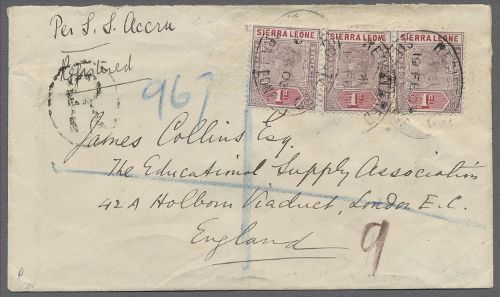 Per S. S. Accra
Registered
967
SIERRA LEONE SIERRA LEONE SIERRA LEONE
1d 1d 1d
R
James Collins Esq.
The Educational Supply Association
42A Holborn Viaduct, London E.C.
England
9